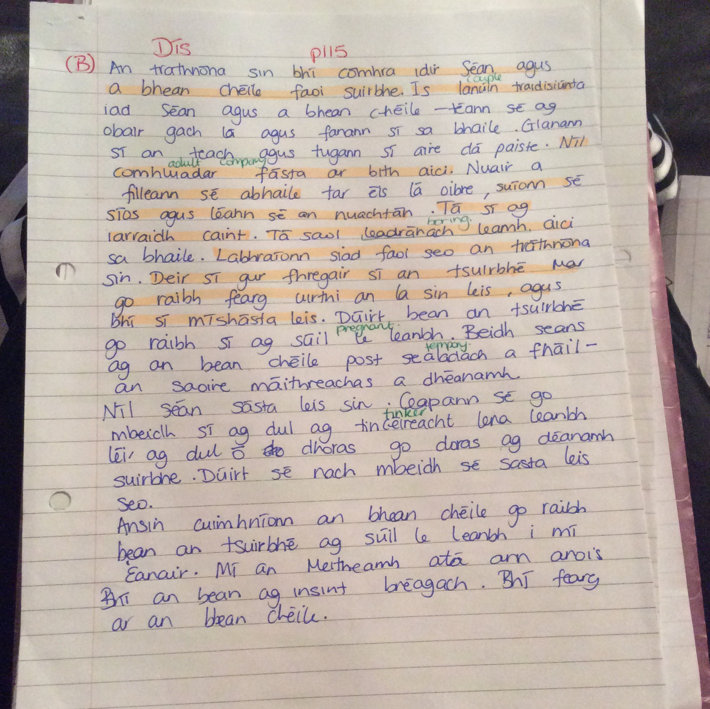 Dís
p115
(B) An trathnóna sin bhí comhra idir Séan agus
a bhean chéile faoi suirbhe. Is lanúin traidisiúnta
couple
iad Séan agus a bhean chéile – téann sé ag
obair gach lá agus fanann sí sa bhaile. Glanann
sí an teach agus tugann sí aire dá paiste. Níl
adult company
comhluadar fásta ar bith aici. Nuair a
filleann sé abhaile tar éis lá oibre, suíonn sé
síos agus léann sé an nuachtán. Tá sí ag
boring
iarraidh caint. Tá saol leadránach leamh aici
sa bhaile. Labhraíonn siad faoi seo an tráthnóna
sin. Deir sí gur fhregair sí an tsuirbhé mar
go raibh fearg uirthi an lá sin leis, agus
bhí sí míshásta leis. Dúirt bean an tsuirbhé
pregnant
go raibh sí ag súil le leanbh. Beidh seans
tempory
ag an bean chéile post sealadach a fháil –
an saoire máithreachas a dhéanamh
Níl séan sásta leis sin. Ceapann sé go
tinker
mbeidh sí ag dul ag tincéireacht lena leanbh
léi, ag dul ó dhoras go doras ag déanamh
suirbhe. Dúirt sé nach mbeidh sé sasta leis
seo.
Ansin cuimhníonn an bhean chéile go raibh
bean an tsuirbhé ag súil le leanbh i mí
Eanair. Mí an Meitheamh atá ann anois
Bhí an bean ag insint bréagach. Bhí fearg
ar an bhean chéile.